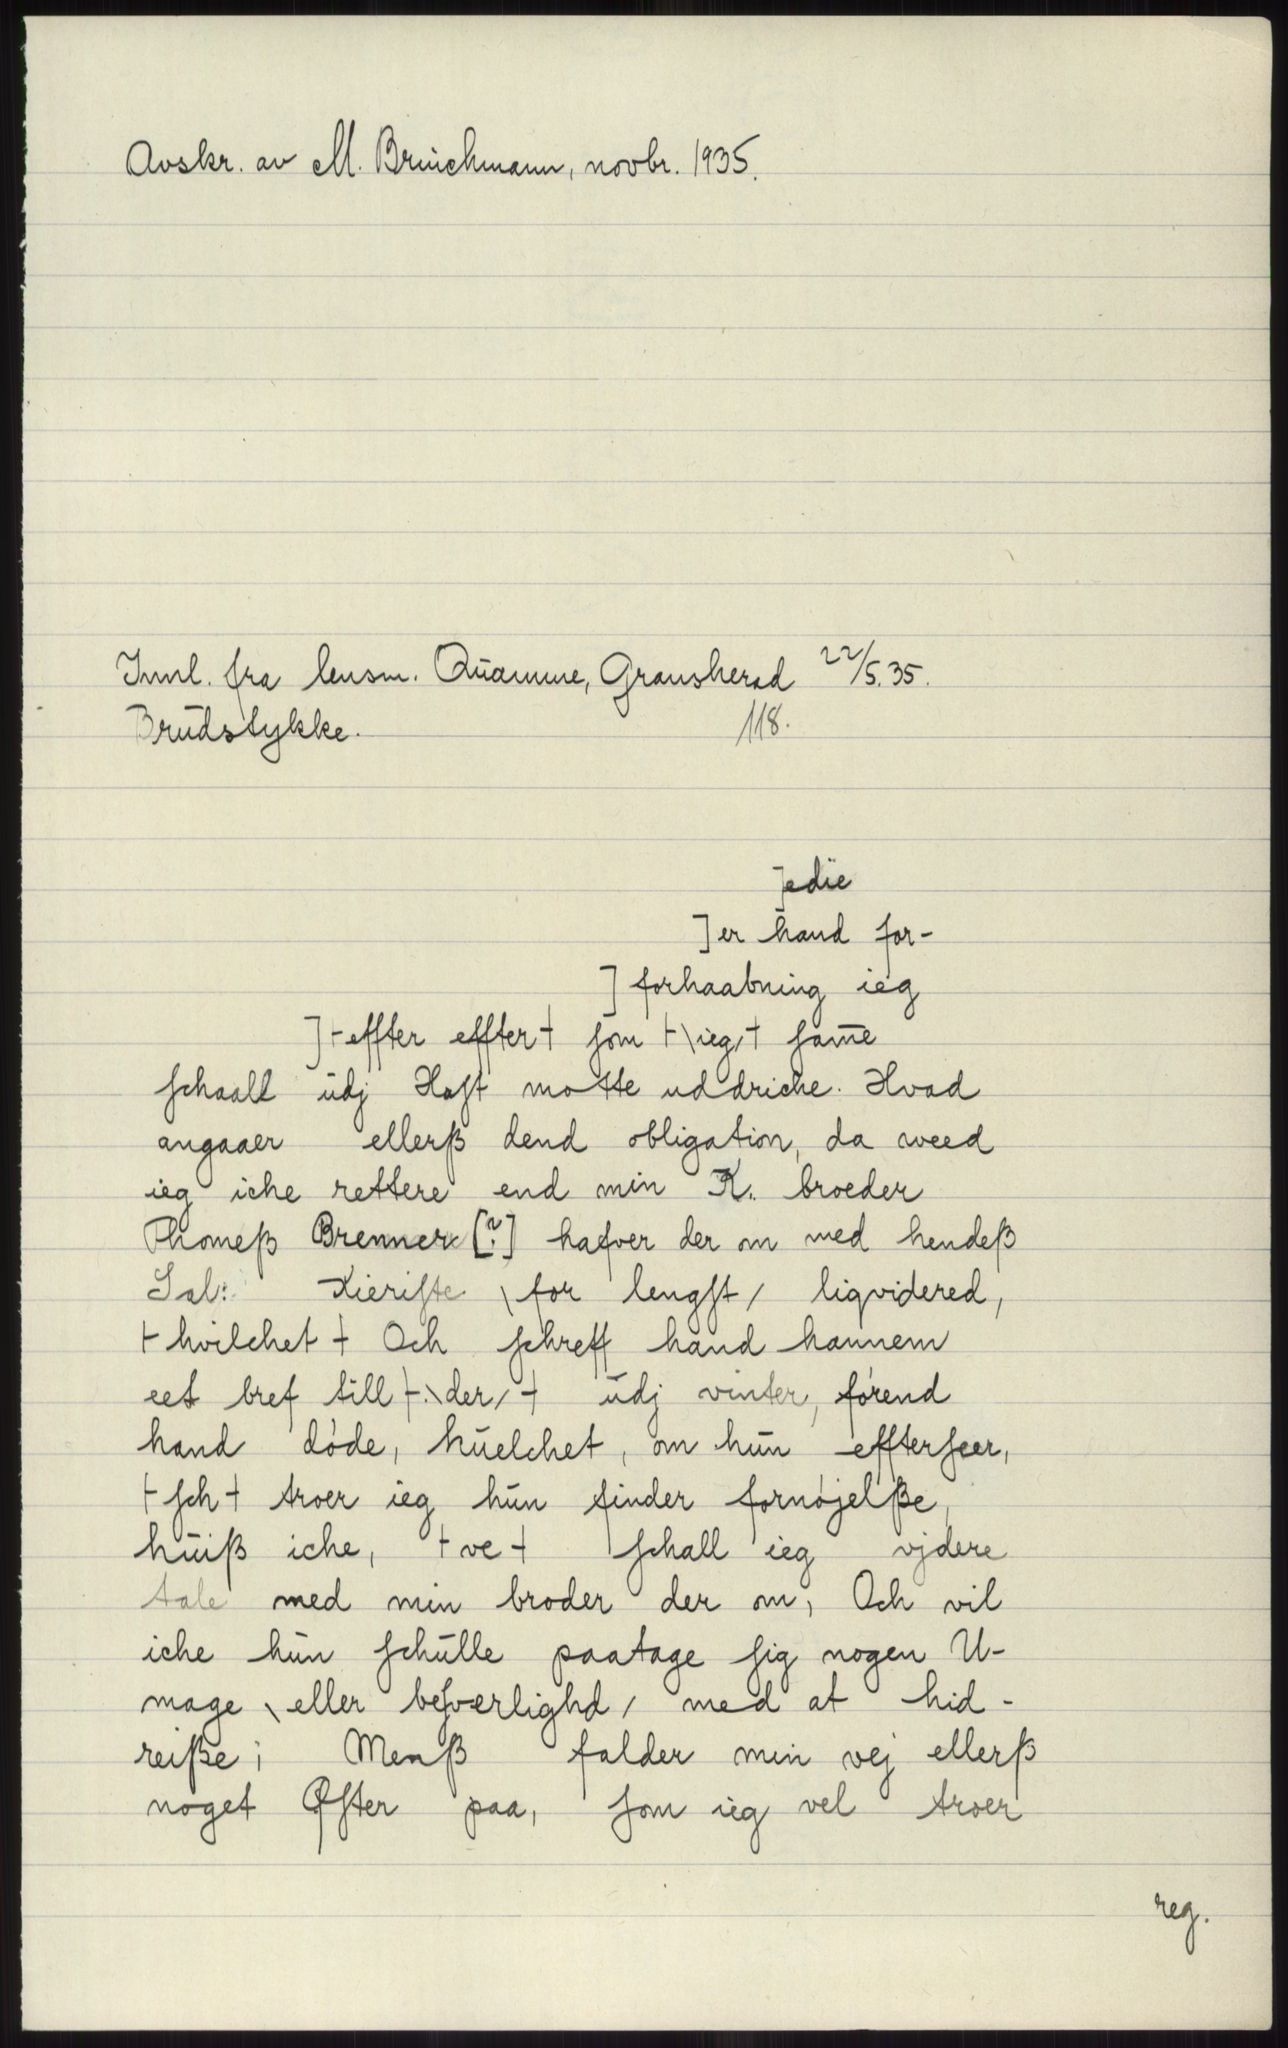 Avskr. av M. Bruichmann, novbr. 1935.
Innl. fra lensm. Quamme, Gransherad 22/5.35.
Brudstykke. 118.
]edie
] er hand for-
] forhaabning ieg
] ⊢effter effter⊣ ſom ⊢\ieg/⊣ ſam̄e
ſchaall udj Haſt motte uddriche. Hvad
angaaer ellerß dend obligation, da weed
ieg iche rettere end min K. broeder
Thomeß Brenner [?] hafver der om med hendeß
Sal: Kieriſte \for lengſt/ liqvidered,
⊢hvilchet⊣ Och ſchreff hand hannem
eet bref till ⊢\der/⊣ udj vinter, førend
hand døde, huelchet, om hun effterſeer,
⊢ſch⊣ troer ieg hun finder fornøjelße,
huiß iche, ⊢ve⊣ ſchall ieg vjdere
tale med min broder der om, Och vil
iche hun ſchulle paatage ſig nogen U-
mage \eller beſværlighd/ med at hid-
reiße; Menß falder min vej ellerß
noget Øfter paa, ſom ieg vel troer
reg.